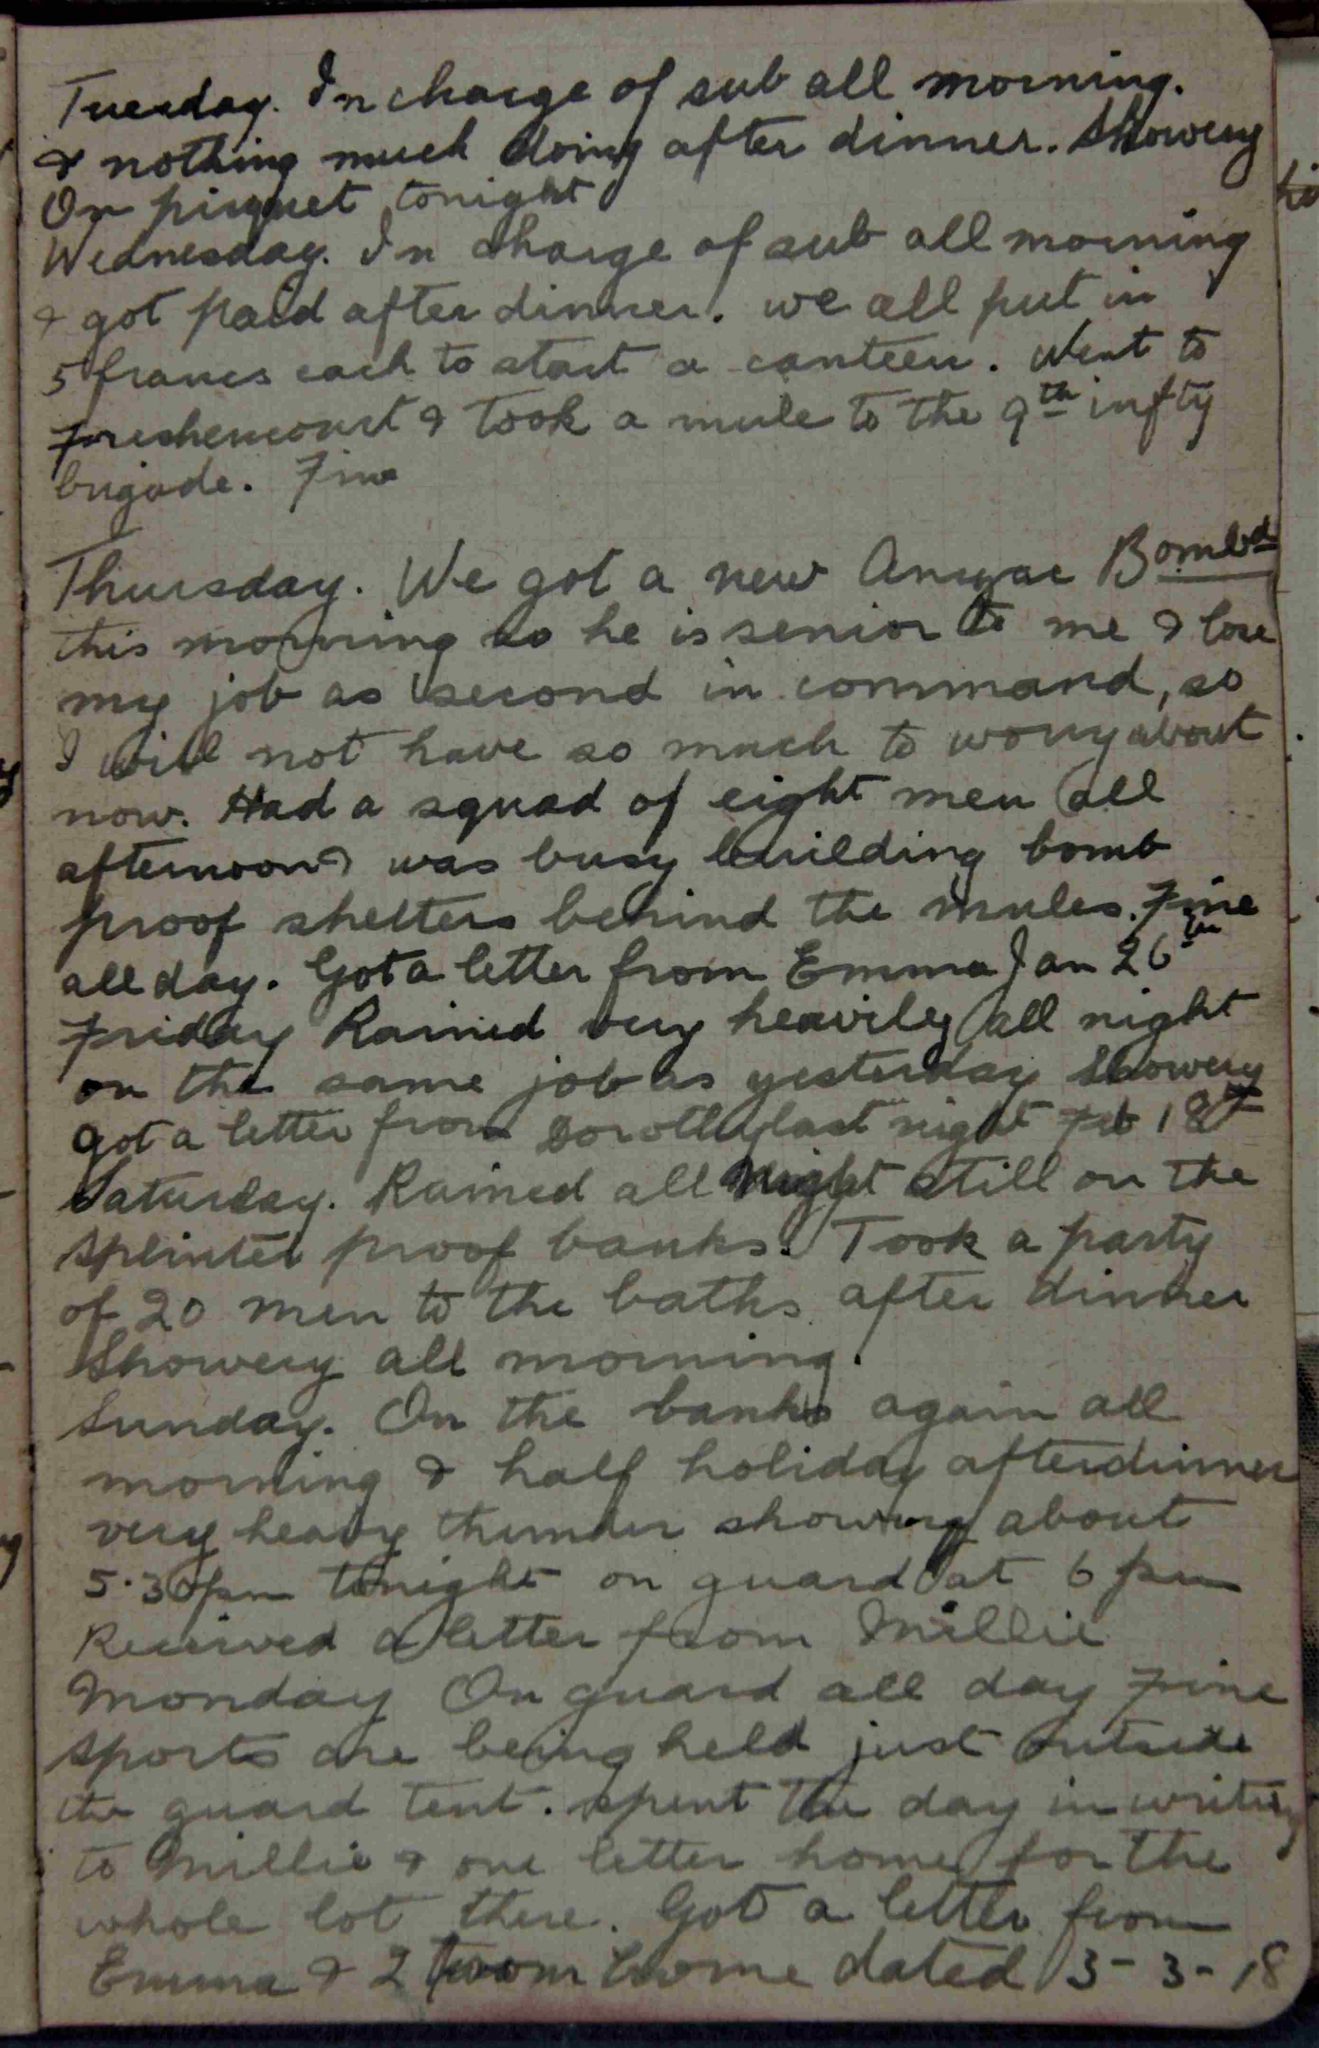 Tuesday. In charge of sub all morning.
& nothing much doing after dinner. Showery
On picquet tonight
Wednesday. In charge of sub all morning
& got paid after dinner. we all put in
5 francs each to start a canteen. Went to
& took a mule to the 9th infty
brigade. Fine
Thursday. We got a new Anzac Bombd
this morning so he is senior to me & lose
my job as second in command, so
I will not have so much to worry about
now. Had a squad of eight men all
afternoon & was busy building bomb
proof shelters behind the mules. Fine
all day. Got a letter from Emma Jan 26th
Friday Rained very heavily all night
on the same job as yesterday Showery
got a letter from Dorothy last night Feb
Saturday. Rained all night still on the
splinter proof banks. Took a party
of 20 men to the baths after dinner
Showery all morning.
Sunday. On the banks again all
morning & half holiday after dinner
very heavy thunder about
5.30pm tonight on guard at 6 pm
Received a letter from Millie
Monday On guard all day Fine
sports are being held just outside
the guard tent. spent the day in writing
to Millie & one letter home for the
whole lot there. Got a letter from
Emma & 2 from home dated 3-3-18